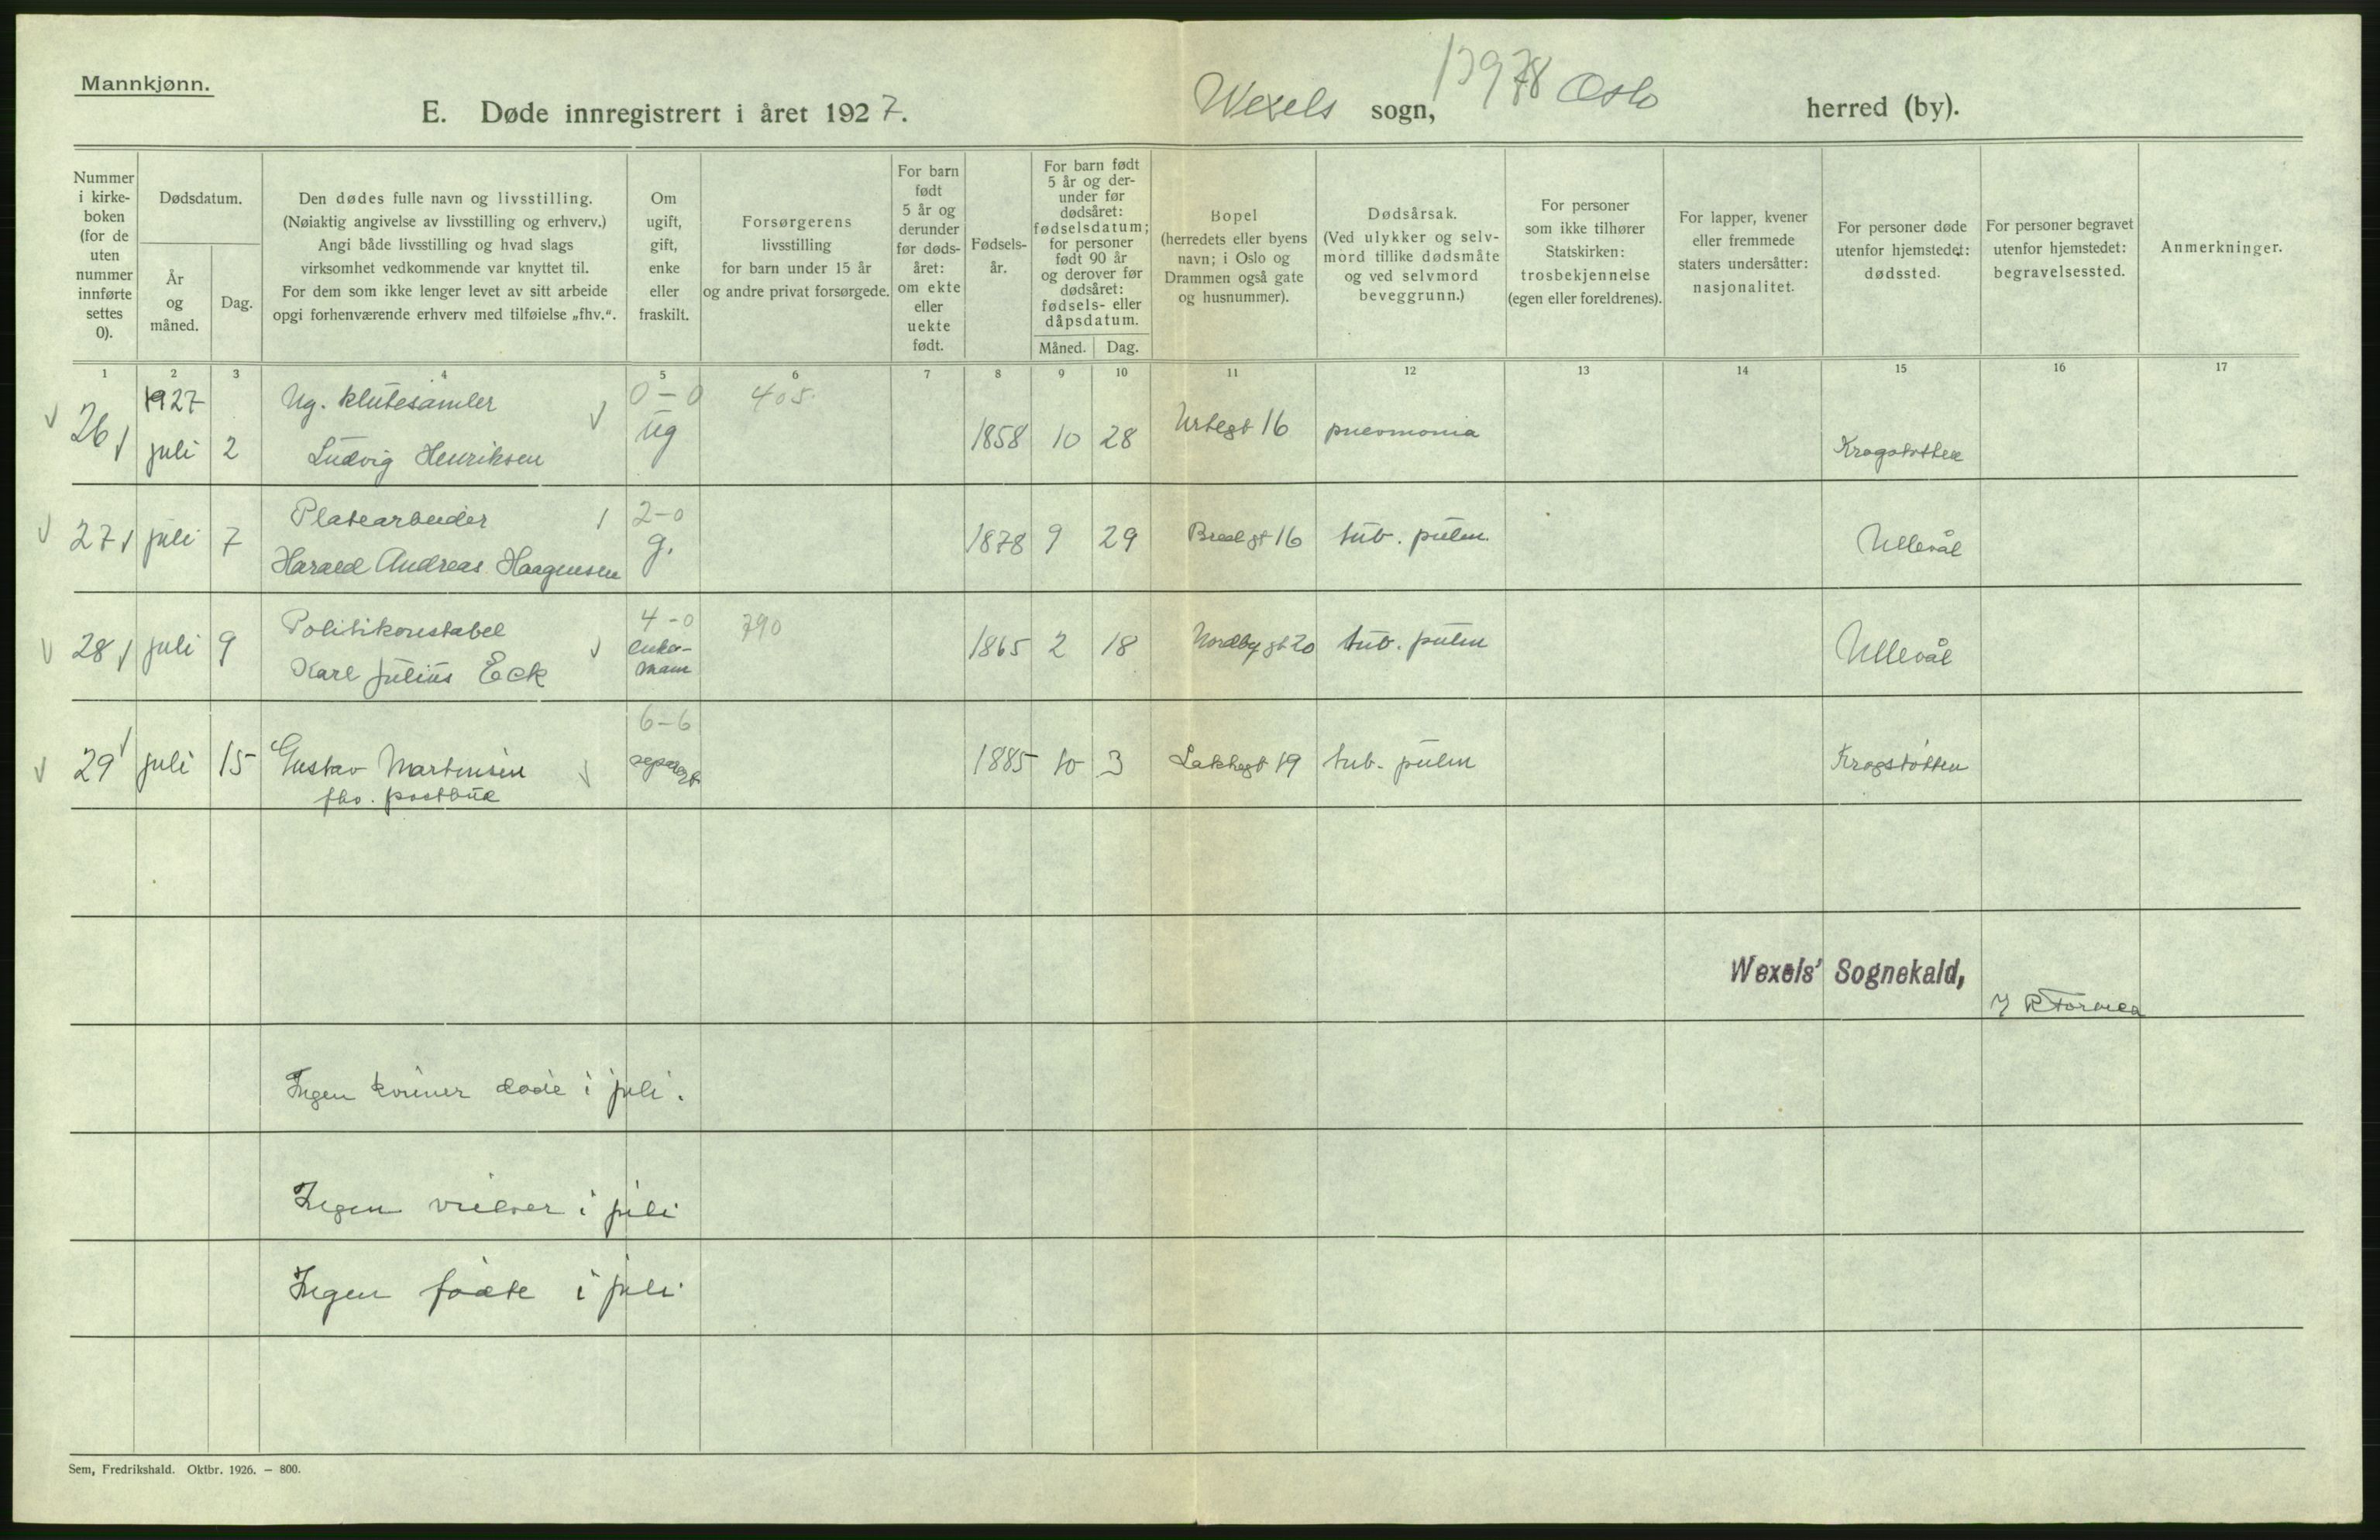 Mannkjønn.
E. Døde innregistrert i året 1927.
Wexels sogn, Oslo herred (by).
Nummer i kirke-boken (for de uten nummer innførte settes 0).
Dødsdatum.
År og måned.
Dag.
Den dødes fulle navn og livsstilling.
(Nøiaktig angivelse av livsstilling og erhverv.)
Angi både livsstilling og hvad slags
virksomhet vedkommende var knyttet til.
For dem som ikke lenger levet av sitt arbeide
opgi forhenværende erhverv med tilføielse „fhv.“.
Om ugift, gift, enke eller fraskilt.
Forsørgerens livsstilling
for barn under 15 år
og andre privat forsørgede.
For barn født 5 år og derunder før døds-året: om ekte eller uekte født.
Fødsels-år.
For barn født 5 år og der-under før dødsåret: fødselsdatum; for personer født 90 år og derover før dødsåret: fødsels- eller dåpsdatum.
Måned. Dag.
Bopel
(herredets eller byens
navn; i Oslo og
Drammen også gate
og husnummer).
Dødsårsak.
(Ved ulykker og selv-
mord tillike dødsmåte
og ved selvmord
beveggrunn.)
For personer
som ikke tilhører
Statskirken:
trosbekjennelse
(egen eller foreldrenes).
For lapper, kvener
eller fremmede
staters undersåtter:
nasjonalitet.
For personer døde
utenfor hjemstedet:
dødssted.
For personer begravet
utenfor hjemstedet:
begravelsessted.
Anmerkninger.
1 2 3 4 5 6 7 8 9 10 11 12 13 14 15 16 17
1927 Ug. klutesamler 0-0 405
26 juli 2 Ludvig Henriksen ug 1858 10 28 Urtegt 16 pneomonia Krogstøtten
Platearbeider 2-0
27 juli 7 Harald Andreas Haagensen g. 1878 9 29 16 tub. pulm. Ullevål
Politikonstabel 4-0 790
28 juli 9 Karl Julius Eck enke-mann 1865 2 18 Nordbygt 20 tub. pulm Ullevål
6-6
29 juli 15 Gustav Martensen separert 1885 10 3 Lakkegt 19 tub. pulm Krogstøtten
fhv. postbud
Wexels' Sognekald,
Ingen kvinner døde i juli.
Ingen vielser i juli
Ingen fødte i juli
Sem, Fredrikshald. Oktbr. 1926. — 800.